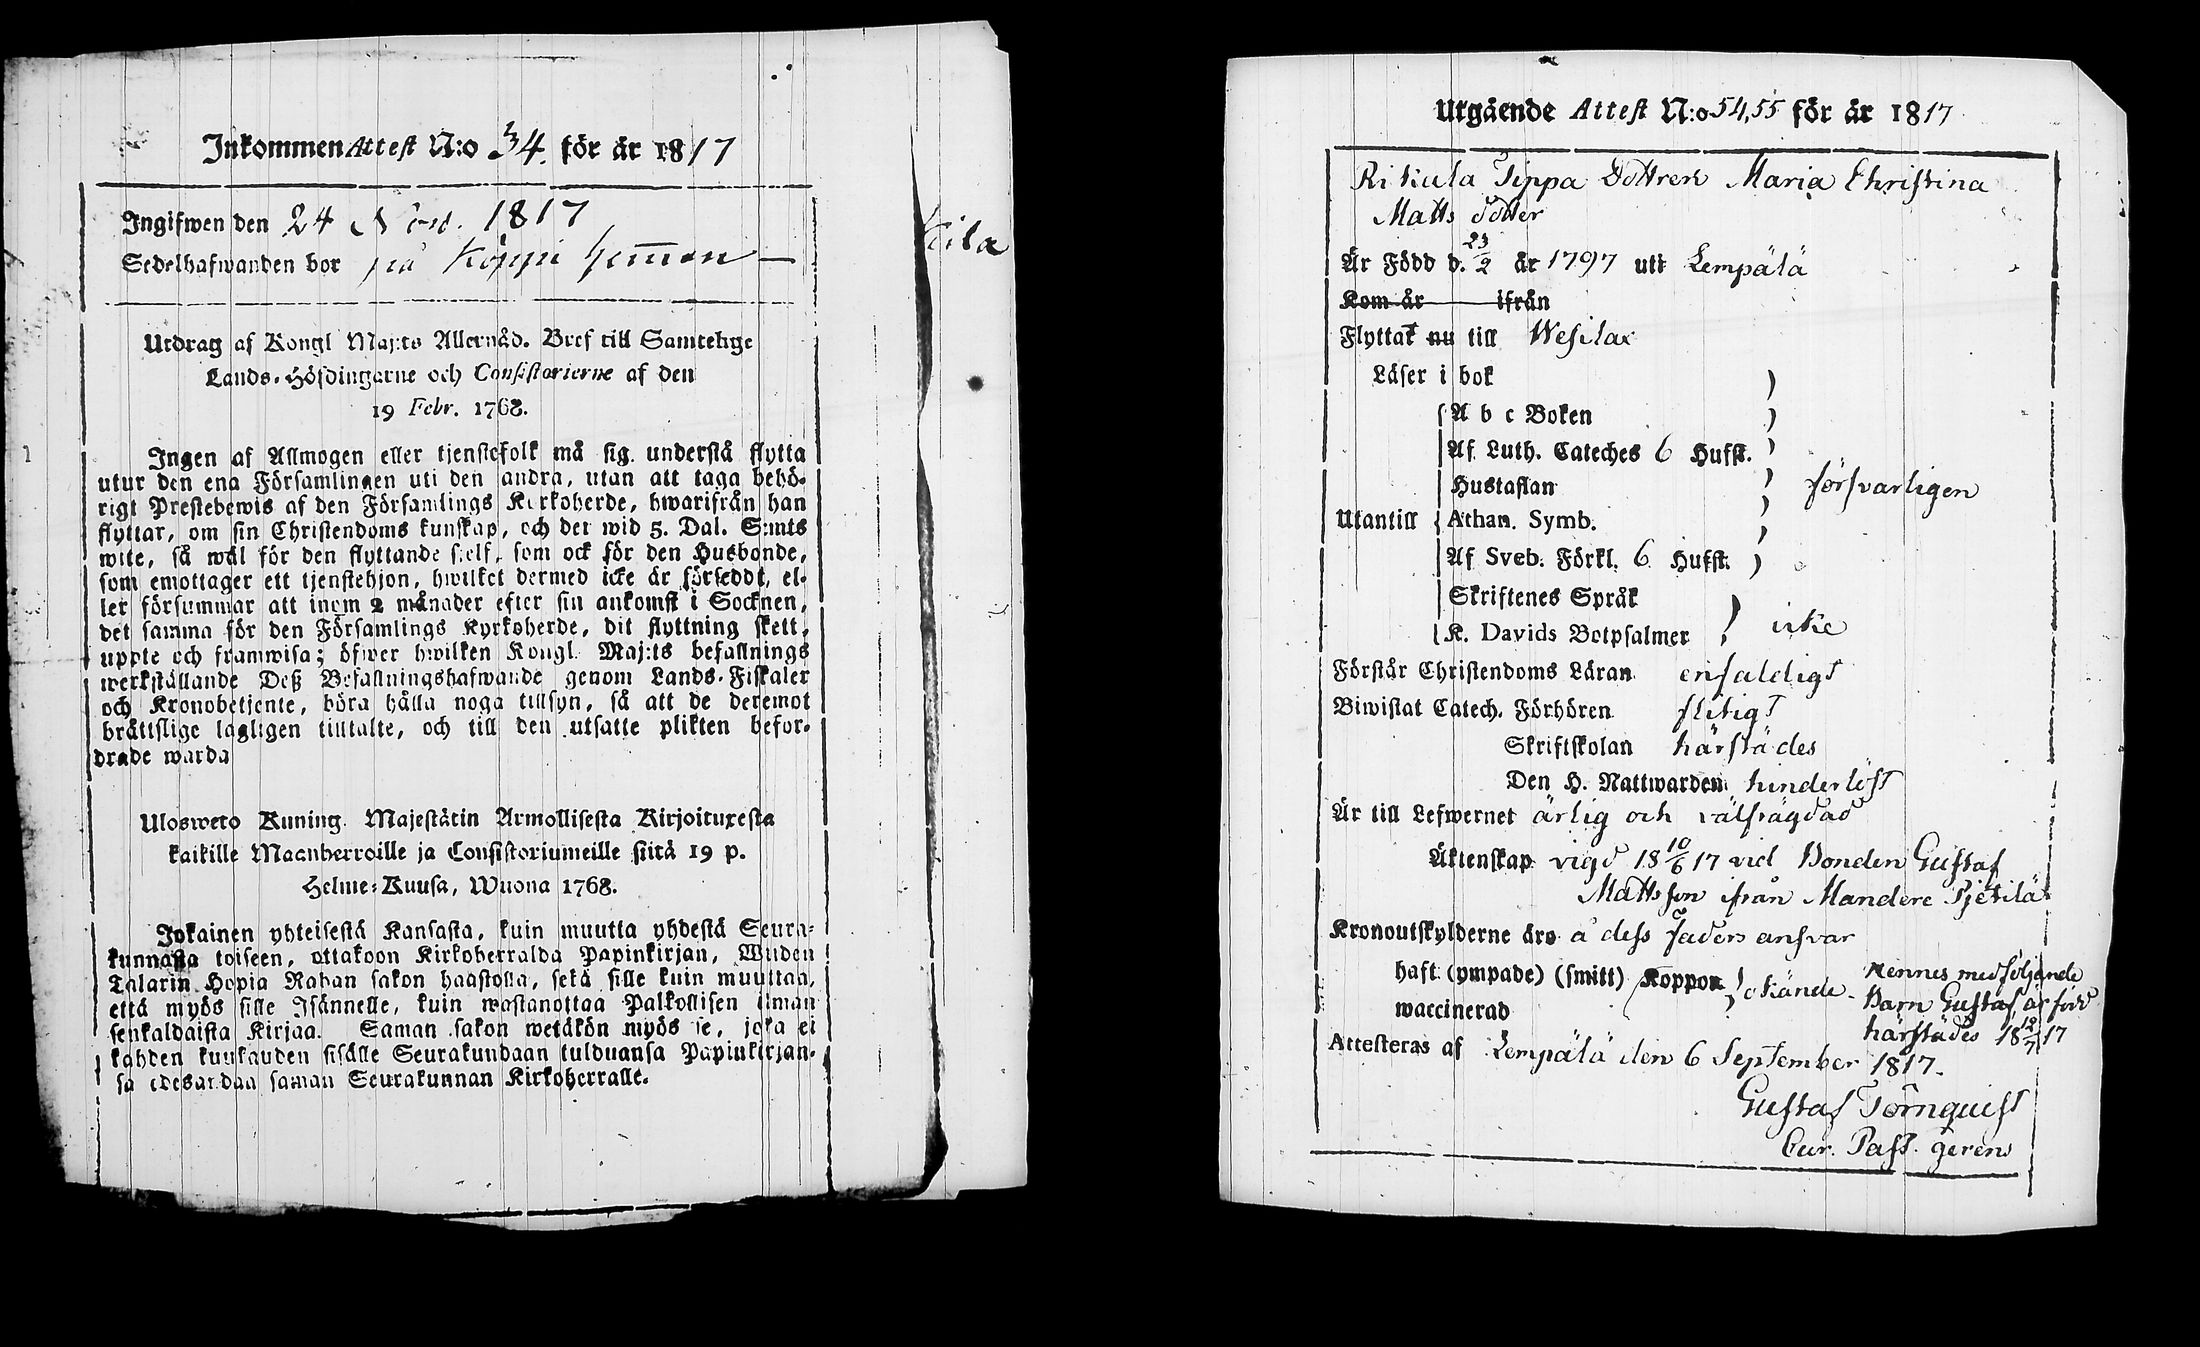 Inkommen Attest N:o 34. för år 1817
Ingifwen den 24 Nov. 1817
Sedelhafwanden bor på Köppi hemman
Utdrag af Kongl Maj:ts Allernåd. Bref till Samtelige
Lands-Höfdingarne och Consistorierne af den
19 Febr. 1768.
Ingen af Allmogen eller tjenstefolk må sig understå flytta
utur den ena Församlingen uti den andra, utan att taga behö-
rigt Prestebewis af den Församlings Kyrkoherde, hwarifrån han
flyttar, om sin Christendoms kunskap, och det wid 5. Dal. S:mts
wite, så wäl för den flyttande sjelf, som ock för den Husbonde,
som emottager ett tjenstehjon, hwilket dermed icke är förseddt, el-
ler försummar att inom 2 månader efter sin ankomst i Socknen,
det samma för den Församlings Kyrkoherde, dit flyttning skett,
uppte och framwisa; öfwer hwilken Kongl. Maj:ts befallnings
werkställande Deß Befallningshafwande genom Lands-Fiskaler
och Kronobetjente, böra hålla noga tillsyn, så att de deremot
brättslige lagligen tilltalte, och till den utsatte plikten befor-
drade warda
Ulosweto Kuning. Majestätin Armollisesta Kirjoituxesta
kaikille Maanherroille ja Consistoriumeille siitä 19 p.
Helme-Kuusa, Wuona 1768.
Jokainen yhteisestä Kansasta, kuin muutta yhdestä Seura-
kunnasta toiseen, ottakoon Kirkoherralda Papinkirjan, Wiiden
Talarin Hopia Rahan sakon haastolla, sekä sille kuin muuttaa,
että myös sille Isännelle, kuin wastanottaa Palkollisen ilman
senkaldaista Kirjaa. Saman sakon wetäkön myös se, joka ei
kahden kuukauden sisälle Seurakundaan tulduansa Papinkirjan-
sa edesandaa saman Seurakunnan Kirkoherralle.
kila
Utgående Attest N:o 54,55 för år 1817
Rikala Seppa Dottren Maria Christina
Matts dotter
Är Född d. 23/2 år 1797 uti Lempälä
Kom år ifrån
Flyttat nu till Wesilax
Läser i bok
A b c Boken
Af Luth. Cateches 6 Hufst.
Hustaflan
försvarligen
Utantill Athan. Symb.
Af Sveb. Förkl. 6 Hufst.
Skriftenes Språk
K. Davids Botpsalmer icke
Förstår Christendoms Läran enfaldigt
Biwistat Catech. Förhören flitigt
Skriftskolan härstädes
Den H. Nattwarden hinderlöst
Är till Lefwernet ärlig och välfrägdad
Äktenskap vigd 18 10/6 17 vid Bonden Gustaf
Mattsson ifrån Mandere Pjetilä
Kronoutskylderne äro å dess faders ansvar
haft (ympade) (smitt) Koppor okände
waccinerad
Hennes medföljande
Barn Gustaf, är född
härstädes 18 12/7 17
Attesteras af Lempälä den 6 September 1817.
Gustaf Törnquist
Cur. Past. gerens